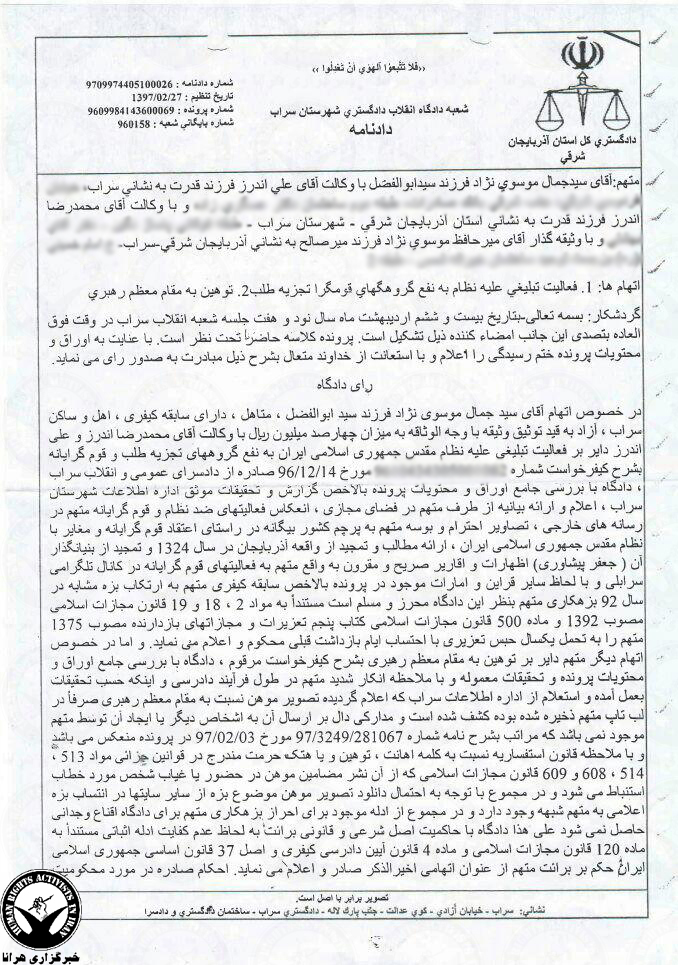 ‹‹فَلا تَتَّبِعُوا اَلهَوَي اَنْ تَعْدِلُوا ››
شعبه دادگاه انقلاب دادگستري شهرستان سراب
دادنامه
شماره دادنامه : 9709974405100026
تاريخ تنظيم : 1397/02/27
شماره پرونده : 9609984143600069
شماره بايگاني شعبه : 960158
دادگستري کل استان آذربايجان
شرقي
متهم:آقای سیدجمال موسوي نژاد فرزند سیدابوالفضل با وکالت آقای علي اندرز فرزند قدرت به نشاني سراب-
و با وکالت آقای محمدرضا
اندرز فرزند قدرت به نشاني استان آذربایجان شرقي - شهرستان سراب -
و با وثیقه گذار آقای میرحافظ موسوي نژاد فرزند میرصالح به نشاني آذربایجان شرقي-سراب-
اتهام ها: 1. فعالیت تبلیغي علیه نظام به نفع گروهگهاي قومگرا تجزیه طلب2. توهین به مقام معظم رهبري
گردشکار: بسمه تعالی-بتاریخ بیست و ششم اردیبهشت ماه سال نود و هفت جلسه شعبه انقلاب سراب در وقت فوق
العاده بتصدی این جانب امضاء کننده ذیل تشکیل است. پرونده کلاسه حاضر تحت نظر است. با عنایت به اوراق و
محتویات پرونده ختم رسیدگی را اعلام و با استعانت از خداوند متعال بشرح ذیل مبادرت به صدور رای می نماید.
رای دادگاه
در خصوص اتهام آقای سید جمال موسوی نژاد فرزند سید ابوالفضل ، متاهل ، دارای سابقه کیفری ، اهل و ساکن
سراب ، آزاد به قید توثیق وثیقه با وجه الوثاقه به میزان چهارصد میلیون ریال با وکالت آقای محمدرضا اندرز و علی
اندرز دایر بر فعالیت تبلیغی علیه نظام مقدس جمهوری اسلامی ایران به نفع گروههای تجزیه طلب و قوم گرایانه
بشرح کیفرخواست شماره مورخ 96/12/14 صادره از دادسرای عمومی و انقلاب سراب
، دادگاه با بررسی جامع اوراق و محتویات پرونده بالاخص گزارش و تحقیقات موثق اداره اطلاعات شهرستان
سراب ، اعلام و ارائه بیانیه از طرف متهم در فضای مجازی ، انعکاس فعالیتهای ضد نظام و قوم گرایانه متهم در
رسانه های خارجی ، تصاویر احترام و بوسه متهم به پرچم کشور بیگانه در راستای اعتقاد قوم گرایانه و مغایر با
نظام مقدس جمهوری اسلامی ایران ، ارائه مطالب و تمجید از واقعه آذربایجان در سال 1324 و تمجید از بنیانگذار
آن ( جعفر پیشاوری) اظهارات و اقاریر صریح و مقرون به واقع متهم به فعالیتهای قوم گرایانه در کانال تلگرامی
سرابلی و با لحاظ سایر قراین و امارات موجود در پرونده بالاخص سابقه کیفری متهم به ارتکاب بزه مشابه در
سال 92 بزهکاری متهم بنظر این دادگاه محرز و مسلم است مستنداً به مواد 2 ، 18 و 19 قانون مجازات اسلامی
مصوب 1392 و ماده 500 قانون مجازات اسلامی کتاب پنجم تعزیرات و مجازاتهای بازدارنده مصوب 1375
متهم را به تحمل یکسال حبس تعزیری با احتساب ایام بازداشت قبلی محکوم و اعلام می نماید. و اما در خصوص
اتهام دیگر متهم دایر بر توهین به مقام معظم رهبری بشرح کیفرخواست مرقوم ، دادگاه با بررسی جامع اوراق و
محتویات پرونده و تحقیقات معموله و با ملاحظه انکار شدید متهم در طول فرآیند دادرسی و اینکه حسب تحقیقات
بعمل آمده و استعلام از اداره اطلاعات سراب که اعلام گردیده تصویر موهن نسبت به مقام معظم رهبری صرفاً در
لب تاپ متهم ذخیره شده بوده کشف شده است و مدارکی دال بر ارسال آن به اشخاص دیگر یا ایجاد آن توسط متهم
موجود نمی باشد که مراتب بشرح نامه شماره 97/3249/281067 مورخ 97/02/03 در پرونده منعکس می باشد
و با ملاحظه قانون استفساریه نسبت به کلمه اهانت ، توهین و یا هتک حرمت مندرج در قوانین جزائی مواد 513 ،
514 ، 608 و 609 قانون مجازات اسلامی که از آن نشر مضامین موهن در حضور یا غیاب شخص مورد خطاب
استنباط می شود و در مجموع با توجه به احتمال دانلود تصویر موهن موضوع بزه از سایر سایتها در انتساب بزه
اعلامی به متهم شبهه وجود دارد و در مجموع از ادله موجود برای احراز بزهکاری متهم برای دادگاه اقناع وجدانی
حاصل نمی شود علی هذا دادگاه با حاکمیت اصل شرعی و قانونی برائت به لحاظ عدم کفایت ادله اثباتی مستنداً به
ماده 120 قانون مجازات اسلامی و ماده 4 قانون آیین دادرسی کیفری و اصل 37 قانون اساسی جمهوری اسلامی
ایران حکم بر برائت متهم از عنوان اتهامی اخیرالذکر صادر و اعلام می نماید. احکام صادره در مورد محکومیت
تصویر برابر با اصل است.
نشاني: سراب - خیابان آزادي - کوي عدالت - جنب پارك لاله - دادگستري سراب - ساختمان دادگستري و دادسرا
HUMAN RIGHTS ACTIVISTS IN IRAN
خبرگزاری هرانا